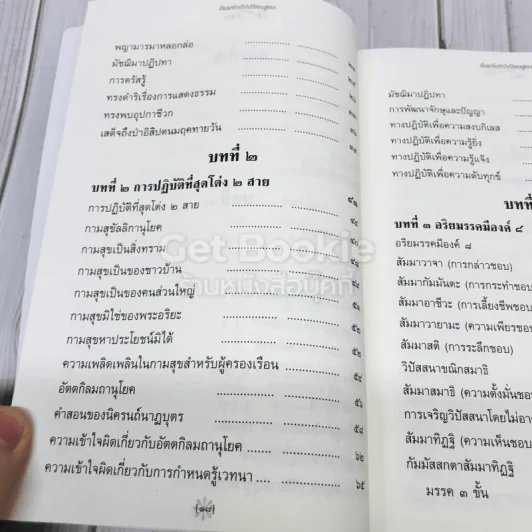 พญามารมาหลอกล่อ ....
มัชฌิมาปฏิปทา ....
การตรัสรู้ ....
ทรงดำริเรื่องการแสดงธรรม ....
ทรงพบอุปกาชีวก ....
เสด็จถึงป่าอิสิปตนมฤคทายวัน ....
บทที่ ๒
บทที่ ๒ การปฏิบัติที่สุดโต่ง ๒ สาย
การปฏิบัติที่สุดโต่ง ๒ สาย ....
กามสุขัลลิกานุโยค ....
กามสุขเป็นสิ่งทราม ....
กามสุขเป็นของชาวบ้าน ....
กามสุขเป็นของคนส่วนใหญ่ ....
กามสุขมิใช่ของพระอริยะ ....
กามสุขหาประโยชน์มิได้ .... ๕๒
ความเพลิดเพลินในกามสุขสำหรับผู้ครองเรือน .... ๕๔
อัตตกิลมถานุโยค .... ๕๖
คำสอนของนิครนถ์นาฏบุตร .... ๕๘
ความเข้าใจผิดเกี่ยวกับอัตตกิลมถานุโยค .... ๖๒
ความเข้าใจผิดเกี่ยวกับการกำหนดรู้เวทนา .... ๖๕
[๑๘]
มัชฌิมาปฏิปทา
การพัฒนาจักษุและปัญญา
ทางปฏิบัติเพื่อความสงบกิเลส
ทางปฏิบัติเพื่อความรู้ยิ่ง
ทางปฏิบัติเพื่อความรู้แจ้ง
ทางปฏิบัติเพื่อความดับทุกข์
บทที่
บทที่ ๓ อริยมรรคมีองค์ ๘
อริยมรรคมีองค์ ๘
สัมมาวาจา (การกล่าวชอบ)
สัมมากัมมันตะ (การกระทำชอบ
สัมมาอาชีวะ (การเลี้ยงชีพชอบ
สัมมาวายามะ (ความเพียรชอบ
สัมมาสติ (การระลึกชอบ)
วิปัสสนาขณิกสมาธิ
สัมมาสมาธิ (ความตั้งมั่นชอบ
การเจริญวิปัสสนาโดยไม่อา
สัมมาทิฏฐิ (ความเห็นชอบ
กัมมัสสกตาสัมมาทิฏฐิ
มรรค ๓ ขั้น
Get Bookie
ร้านหนังสือบุคกี้